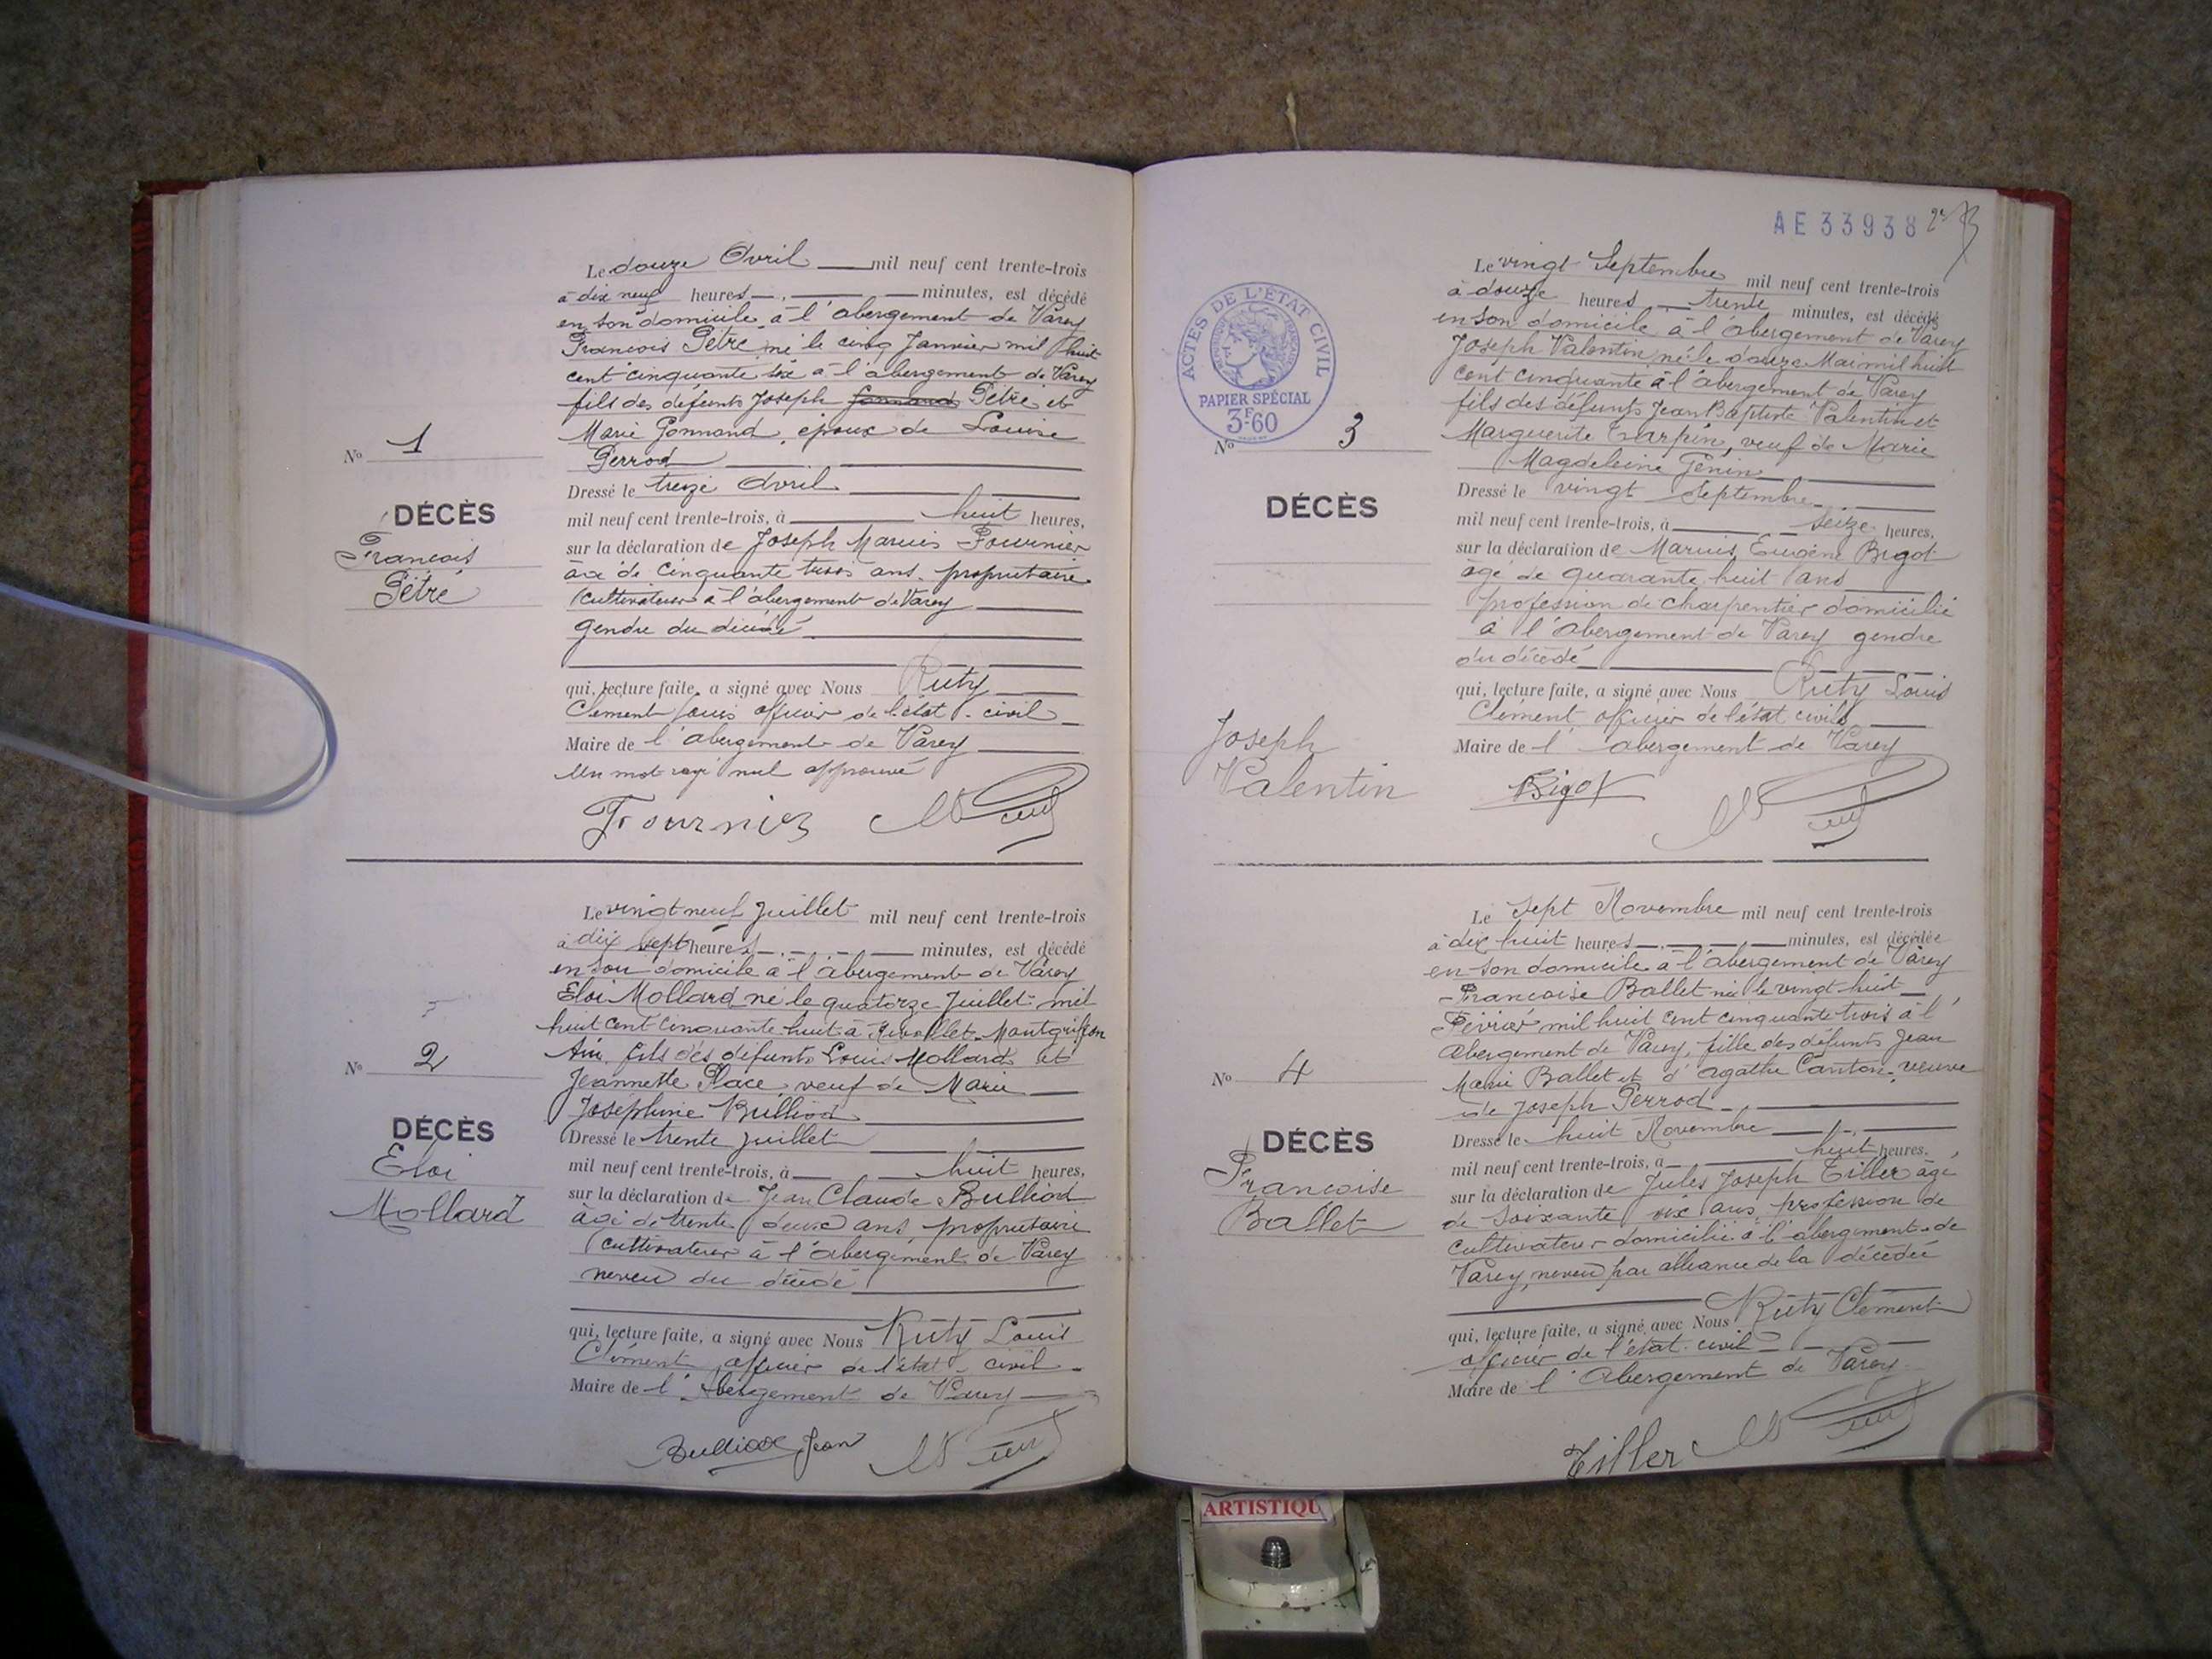 Le douze Avril mil neuf cent trente-trois
à dix neuf heures minutes, est décédé
en son domicile à l'abergement de Varey
Francois Pétré né le cinq Janvier mil huit
cent cinquante six à l'abergement de Varey
fils des défunts Joseph Pétré et
Marie Gonnand, époux de Louise
Perrod
Dressé le treize Avril
mil neuf cent trente-trois, à huit heures,
sur la déclaration de Joseph Marius Fournier
âgé de cinquante trois ans, propriétaire
cultivateur à l'abergement de Varey
gendre du décédé
qui, lecture faite, a signé avec Nous Ruty
Clément Louis officier de l'état-civil
Maire de l'abergement de Varey
Un mot rayé nul approuvé
Fournier
No 1
DÉCÈS
Francois
Pétré
Le vingt neuf Juillet mil neuf cent trente-trois
à dix sept heures minutes, est décédé
en son domicile à l'abergement de Varey
Eloi Mollard né le quatorze Juillet mil
huit cent cinquante huit à Montgriffon
Ain, fils des défunts Louis Mollard et
Jeannette Place, veuf de Marie
Joséphine Bulliod
Dressé le trente Juillet
mil neuf cent trente-trois, à huit heures,
sur la déclaration de Jean Claude Bulliod
âgé de trente deux ans propriétaire
cultivateur à l'abergement de Varey
neveu du décédé
qui, lecture faite, a signé avec Nous Ruty Louis
Clément officier de l'état-civil
Maire de l'abergement de Varey
Bulliod Jean
No 2
DÉCÈS
Eloi
Mollard
AE 33938
Le vingt Septembre mil neuf cent trente-trois
à douze heures trente minutes, est décédé
en son domicile à l'abergement de Varey
Joseph Valentin né le douze Mai mil huit
cent cinquante à l'abergement de Varey
fils des défunts Jean Baptiste Valentin et
Marguerite Tarpin, veuf de Marie
Magdeleine Génin
Dressé le vingt Septembre
mil neuf cent trente-trois, à seize heures,
sur la déclaration de Marius Eugène Bigot
agé de quarante huit ans
profession de charpentier domicilié
à l'abergement de Varey gendre
du décédé
qui, lecture faite, a signé avec Nous Ruty Louis
Clément officier de l'état civil
Maire de l'abergement de Varey
Bigot
ACTES DE L'ÉTAT CIVIL
PAPIER SPÉCIAL
3F60
No 3
DÉCÈS
Joseph
Valentin
Le Sept Novembre mil neuf cent trente-trois
à dix huit heures minutes, est décédée
en son domicile à l'abergement de Varey
Francoise Ballet née le vingt huit
Février mil huit cent cinquante trois à l'
abergement de Varey, fille des défunts Jean
Marie Ballet et d'agathe Canton, veuve
de Joseph Perrod
Dressé le huit Novembre
mil neuf cent trente-trois, à huit heures,
sur la déclaration de Jules Joseph Tiller âgé
de soixante six ans, profession de
cultivateur domicilié à l'abergement de
Varey, neveu par alliance de la décédée
qui, lecture faite, a signé avec Nous Ruty Clément
officier de l'état-civil
Maire de l'Abergement de Varey
Tiller
No 4
DÉCÈS
Francoise
Ballet
ARTISTIQU